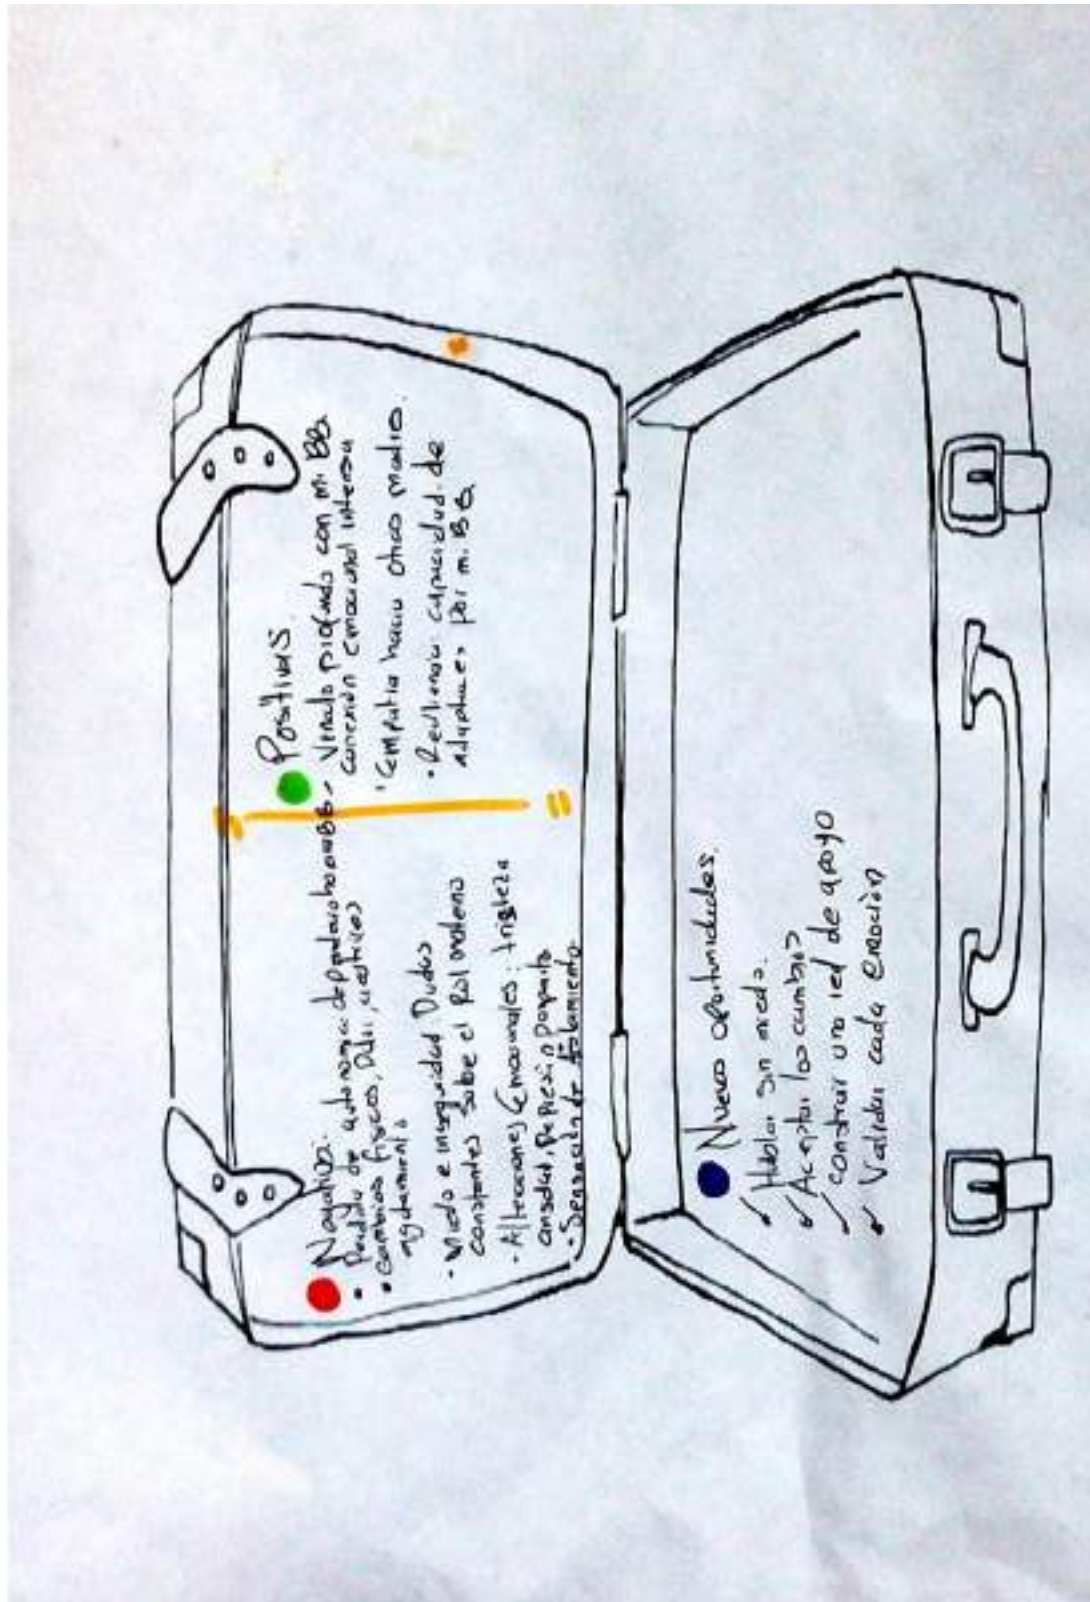 Negativas.
• Perdida de autonomia: dependencia hora BB
• Cambios fisicos, Dolor, cicatrices
agotamiento
• Miedo e inseguridad Dudas
constantes sobre el Rol materno
• Alteraciones Emocionales: tristeza
ansiedad, Depresión posparto
• Sensación de Aislamiento.
Positivas.
Vinculo profundo con mi BB.
conexión emocional intensa
• Empatia hacia otras madres.
• Resiliencia: capacidad de
adaptarse por mi BB.
Nuevas oportunidades.
Hablar sin miedo.
Aceptar los cambios
construir una red de apoyo
Validar cada emoción